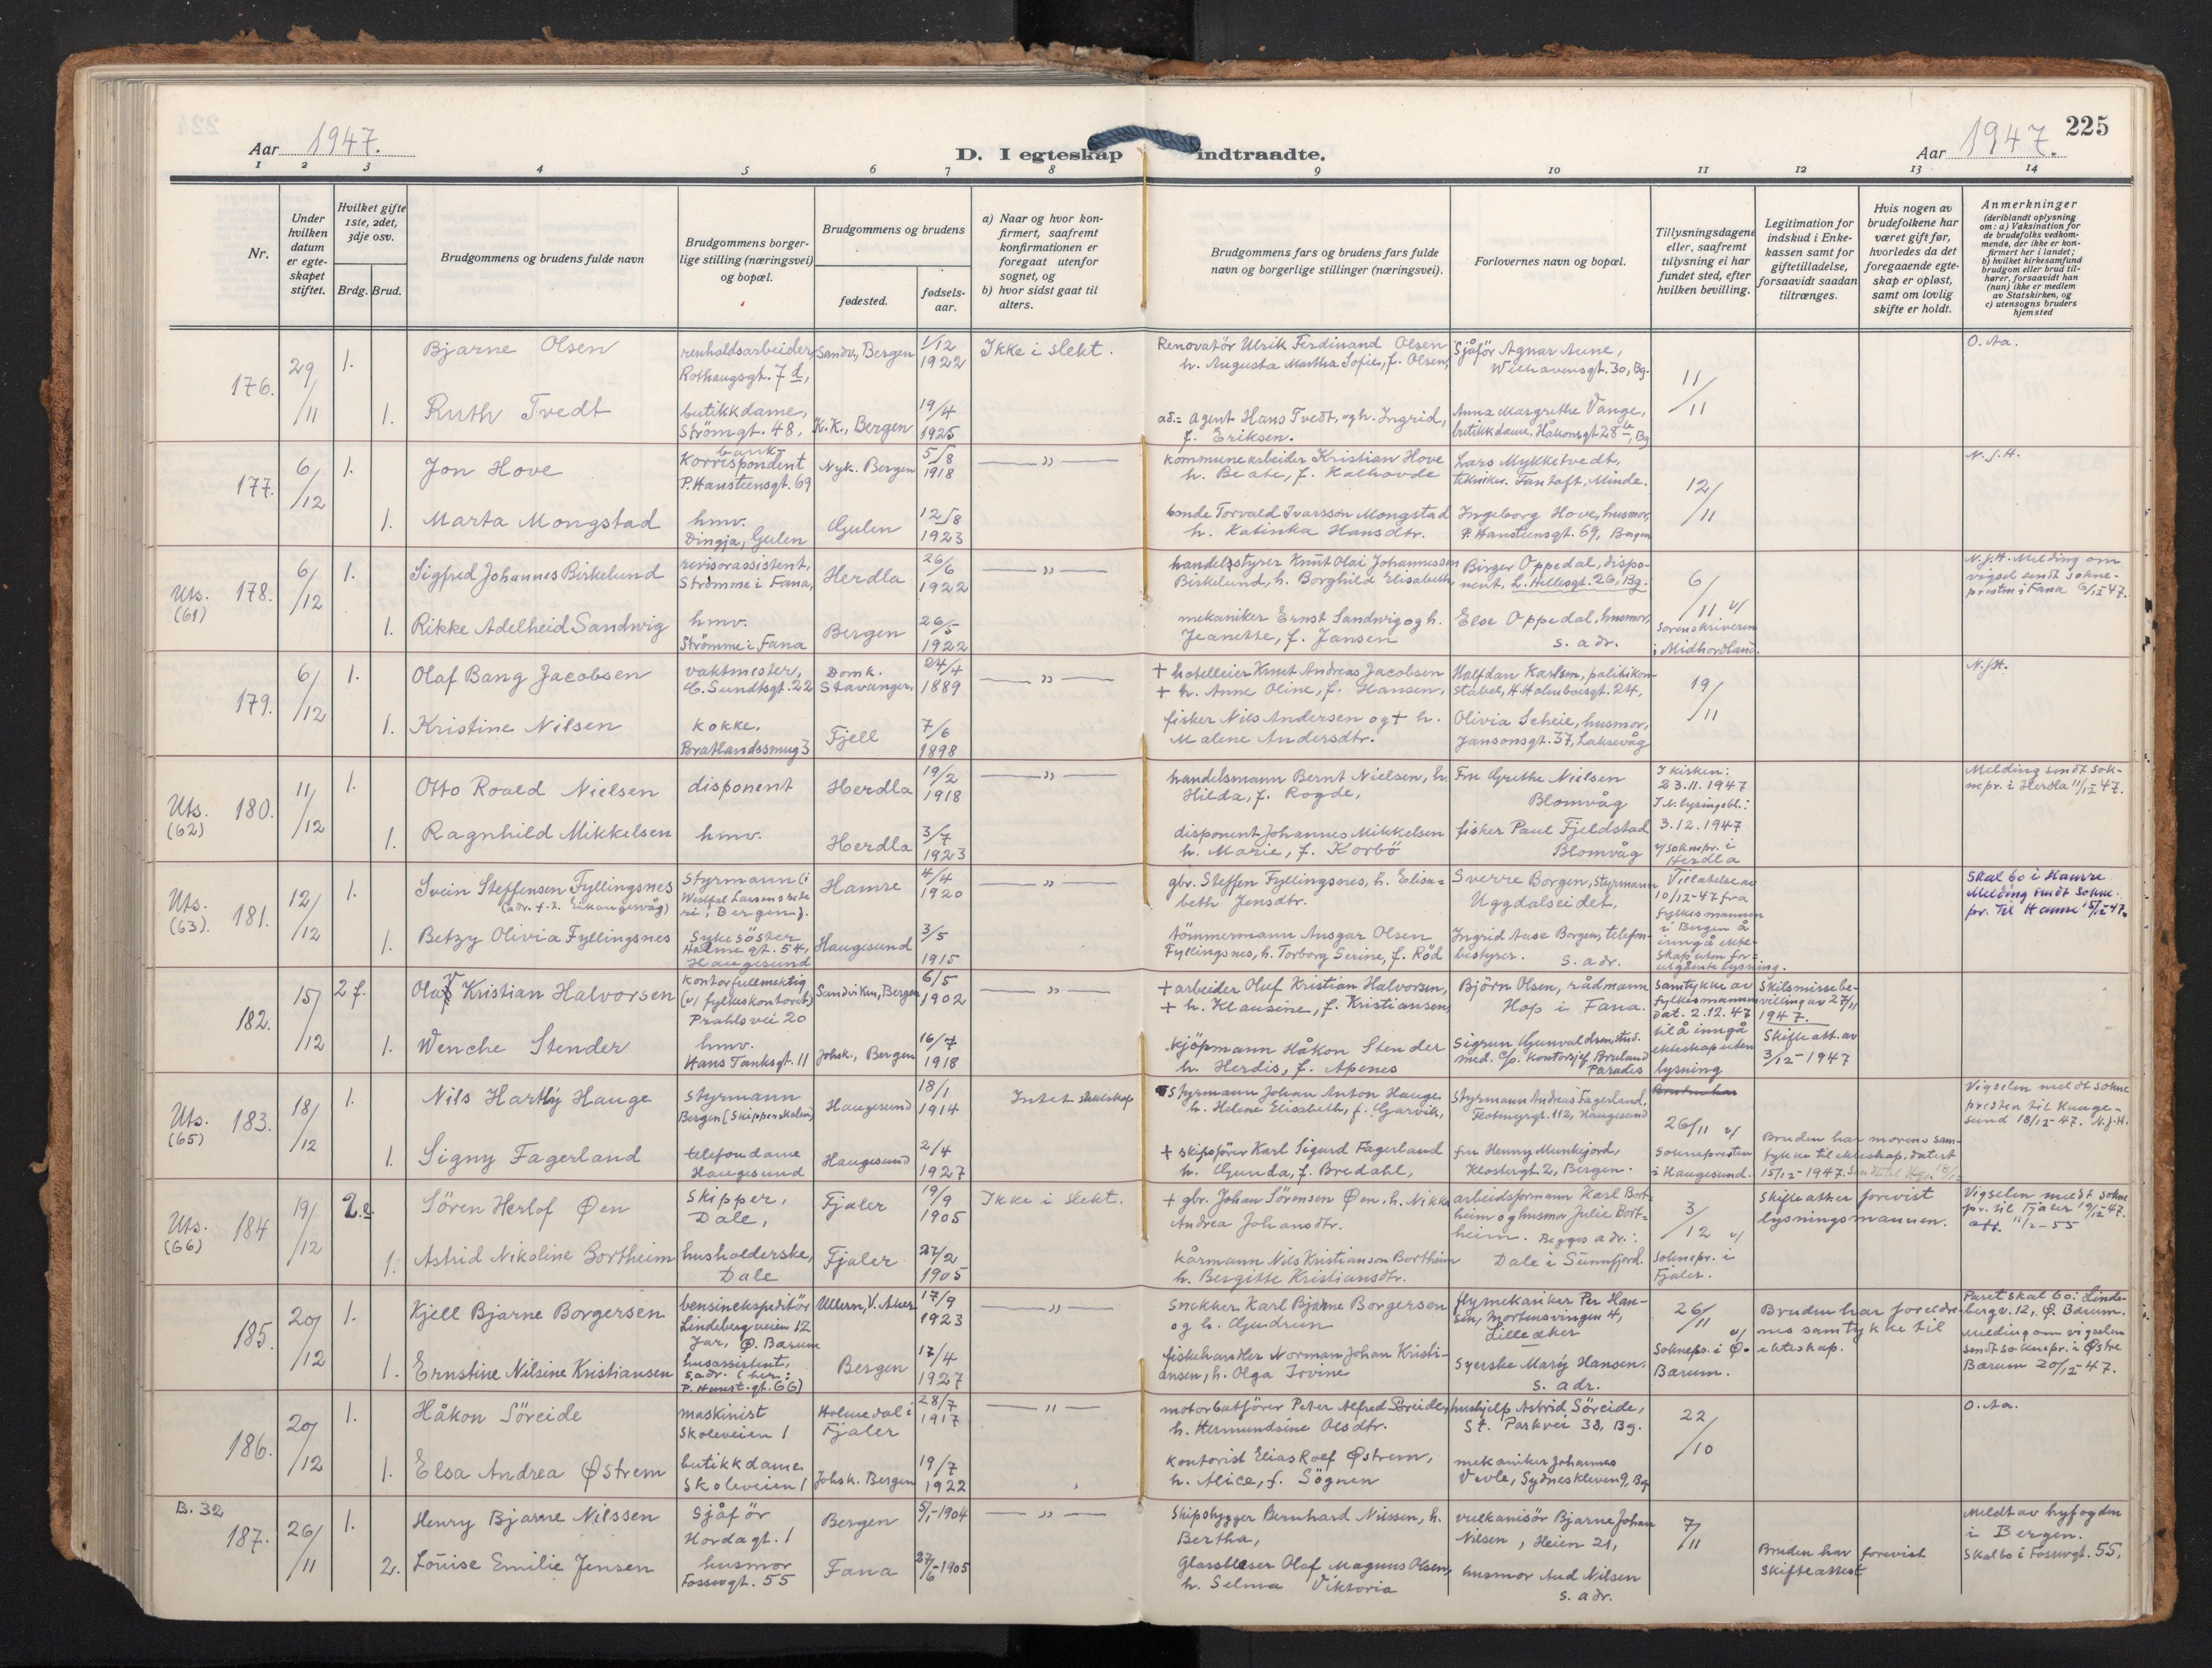 Aar 1947.
D. I egteskap indtraadte.
Aar 1947.
225
1 2 3 4 5 6 7 8 9 10 11 12 13 14
Nr.
Under hvilken datum er egteskapet stiftet.
Hvilket gifte 1ste, 2det, 3dje osv.
Brdg. Brud.
Brudgommens og brudens fulde navn
Brudgommens borgerlige stilling (næringsvei) og bopæl.
Brudgommens og brudens
fødested.
fødselsaar.
a) Naar og hvor konfirmert, saafremt konfirmationen er foregaat utenfor sognet, og
b) hvor sidst gaat til alters.
Brudgommens fars og brudens fars fulde navn og borgerlige stillinger (næringsvei).
Forlovernes navn og bopæl.
Tillysningsdagene eller, saafremt tillysning ei har fundet sted, efter hvilken bevilling.
Legitimation for indskud i Enkekassen samt for giftetilladelse, forsaavidt saadan tiltrænges.
Hvis nogen av brudefolkene har været gift før, hvorledes da det foregaaende egteskap er opløst, samt om lovlig skifte er holdt.
Anmerkninger
(deriblandt oplysning om: a) Vaksination for de brudefolks vedkommende, der ikke er konfirmert her i landet; b) hvilket kirkesamfund brudgom eller brud tilhører, forsaavidt han (hun) ikke er medlem av Statskirken, og c) utensogns bruders hjemsted
176. 29/11 1. Bjarne Olsen renholdsarbeider, Rothaugsgt. 7 d, Sandv., Bergen 1/12 1922 Ikke i slekt. Renovatör Ulrik Ferdinand Olsen h. Augusta Martha Sofie, f. Olsen, Sjåför Agnar Aune, Welhavensgt. 30, Bg. 11/11 O. Aa.
1. Ruth Tvedt butikkdame, Strömgt. 48, K.K., Bergen 19/4 1925 ad.= agent Hans Tvedt, og h. Ingrid, f. Eriksen. Anna Margrethe Vange, butikkdame, Håkonsgt 28 b, Bg
177. 6/12 1. Jon Hove bankkorrespondent P. Hansteensgt. 69 Nyk. Bergen 5/8 1918 — " — kommunearbeider Kristian Hove h. Beate, f. Kalhovde Lars Mykketvedt, tekniker. Fantoft, Minde. 12/11 N.J.H.
1. Marta Mongstad hmv. Dingja, Gulen Gulen 12/8 1923 bonde Torvald Ivarsson Mongstad h. Katinka Hansdtr. Ingeborg Hove, husmor, P. Hansteensgt. 69, Bergen
Uts. (61) 178. 6/12 1. Sigfred Johannes Birkelund revisorassistent, Strömme i Fana, Herdla 26/6 1922 — " — handelsstyrer Knut Olai Johannessen Birkelund, h. Borghild Elisabeth, Birger Oppedal, disponent, L. Hellesgt. 26, Bg. 6/11 v/ Sorenskriveren i Midhordland. N.J.H. Melding om vigsel sendt soknepresten i Fana 6/12 47.
1. Rikke Adelheid Sandwig hmv. Strömme i Fana Bergen 26/5 1922 mekaniker Ernst Sandwig og h. Jeanette, f. Jansen Else Oppedal, husmor, s. adr.
179. 6/12 1. Olaf Bang Jacobsen vaktmester, C. Sundtsgt. 22 Domk. Stavanger, 24/4 1889 — " — + hotelleier Knut Andreas Jacobsen + h. Anne Oline, f. Hansen, Halfdan Karlsen, politikonstabel, H. Holmboesgt. 24, 19/11 N.J.H.
1. Kristine Nilsen kokke. Bratlandssmug 3 Fjell 7/6 1898 fisker Nils Andersen og + h. Malene Andersdtr. Olivia Scheie, husmor, Jansonsgt. 37, Laksevåg
Uts. (62) 180. 11/12 1. Otto Roald Nielsen disponent Herdla 19/2 1918 — " — handelsmann Bernt Nielsen, h. Hilda, f. Rogde, Fru Grethe Nielsen Blomvåg I kirken: 23.11.1947 I N. lysingsbl.: 3.12.1947 v/ soknepr. i Herdla Melding sendt soknepr. i Herdla 11/12 47.
1. Ragnhild Mikkelsen hmv. Herdla 3/7 1923 disponent Johannes Mikkelsen h. Marie, f. Korbö fisker Paul Fjeldstad Blomvåg
Uts. (63). 181. 12/12 1. Svein Steffensen Fyllingsnes (adr. f. t. Eikangervåg) Styrmann (i Westfal Larsens rederi, Bergen). Hamre 4/4 1920 — " — gbr. Steffen Fyllingsnes, h. Elisabeth Jensdtr. Sverre Borgen, styrmann Uggdalseidet. Tillatelse av 10/12-47 fra fylkesmannen i Bergen å inngå ekteskap uten forutgående lysning. Skal bo i Hamre. Melding sendt sokne. pr. til Hamre 15/12 47.
1. Betzy Olivia Fyllingsnes Sykesöster Holmegt. 54, Haugesund Haugesund 3/5 1915 tömmermann Ansgar Olsen Fyllingsnes, h. Torborg Serine, f. Röd Ingrid Aase Borgen, telefonbestyrer. s. adr.
182. 15/12 2 f. Olav Kristian Halvorsen kontorfullmektig (v/ fylkeskontoret) Prahls vei 20 Sandviken, Bergen 6/5 1902 — " — + arbeider Oluf Kristian Halvorsen, + h. Klausine, f. Kristiansen, Björn Olsen, rådmann Hop i Fana. Samtykke av fylkesmannen dat. 2.12.47 til å inngå ekteskap uten lysning Skilsmissebevilling av 27/11 1947. Skifteatt. av 3/12-1947
1. Wenche Stender hmv. Hans Tanksgt. 11 Johsk., Bergen 16/7 1918 kjöpmann Håkon Stender h. Herdis, f. Apenes Sigrun Gunvaldsen, stud. med. c/o. kontorsjef Bruland Paradis
Uts. (65) 183. 18/12 1. Nils Hartly Hauge styrmann Bergen (Skipperskolen) Haugesund 18/1 1914 Intet slektskap Styrmann Johan Anton Hauge h. Helene Elisabeth, f. Gjarvik, Styrmann Andreas Fagerland, Flotmyrgt. 112, Haugesund 26/11 v/ Sokneprestn i Haugesund. Bruden har morens samtykke til ekteskap, datert 15/12-1947. Vigselen meldt sokneprestn til Haugesund 18/12-47. N.J.H.
1. Signy Fagerland telefondame Haugesund Haugesund 2/4 1927 + skipsförer Karl Sigurd Fagerland h. Gunda, f. Bredahl, fru Henny Munkejord, Klostergt. 2, Bergen.
Uts. (66) 184 19/12 2. e. Sören Herlof Øen Skipper, Dale, Fjaler 19/9 1905 Ikke i slekt. + gbr. Johan Sörensen Øen, h. Nikka Andrea Johansdtr. arbeidsformann Karl Bortheim og husmor Julie Bortheim. Begges adr.: Dale i Sunnfjord. 3/12 v/ Soknepr. i Fjaler. Skifteattest forevist lysningsmannen. Vigselen meldt soknepr. til Fjaler 19/12-47. att. 11/2-55
1. Astrid Nikoline Bortheim husholderske, Dale Fjaler 27/2 1905 kårmann Nils Kristianson Bortheim h. Bergitte Kristiansdtr.
185. 20/12 1. Kjell Bjarne Borgersen bensinekspeditör Lindebergveien 12 Jar, Ø. Bærum Ullern, V. Aker 17/9 1923 — " — snekker Karl Bjarne Borgersen og h. Gudrun flymekaniker Per Hansen, Mortensvingen 4, Lilleaker 26/11 v/ Soknepr. i Ø. Bærum. Bruden har foreldrenes samtykke til ekteskap. Paret skal bo: Lindebergv. 12, Ø. Bærum. Melding om vigselen sendt soknepr. i Østre Bærum 20/12-47.
1. Ernstine Nilsine Kristiansen husassistent, s. adr. (her: P. Hanst. gt. 66) Bergen 17/4 1927 fiskehandler Norman Johan Kristiansen, h. Olga Irvine Syerske Mary Hansen, s. adr.
186. 20/12 1. Håkon Söreide maskinist Skoleveien 1 Holmedal i Fjaler 28/7 1917 — " — motorbatförer Peter Alfred Söreide, h. Hermundsine Olsdtr. hushjelp Astrid Söreide, St. Parkvei 38, Bg. 22/10 O. Aa.
1. Elsa Andrea Østrem butikkdame Skoleveien 1 Johsk. Bergen 19/7 1922 kontorist Elias Roef Østrem, h. Alice, f. Sögnen mekaniker Johannes Vevle, Sydneskleven 9, Bg
B. 32 187. 26/11 1. Henry Bjarne Nilssen Sjåför Hordagt. 1 Bergen 5/1-1904 — " — Skipsbygger Bernhard Nilssen, h. Bertha, vulkanisör Bjarne Johan Nilsen, Heien 21, 7/11 Bruden har forevist skifteattest Meldt av byfogden i Bergen. Skal bo i Fosswgt. 55.
2. Louise Emilie Jensen husmor Fosswgt. 55 Fana 27/6-1905 Glassbleser Olaf Magnus Olsen, h. Selma Viktoria husmor Aud Nilsen s. adr.